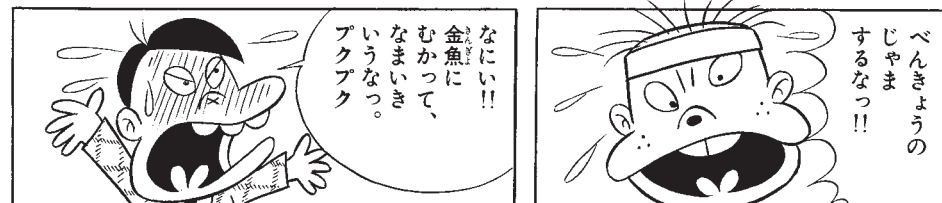 べんきょうの
じゃま
するなっ!!
なにい!!
金魚に
むかって、
なまいき
いうなっ。
プクプク